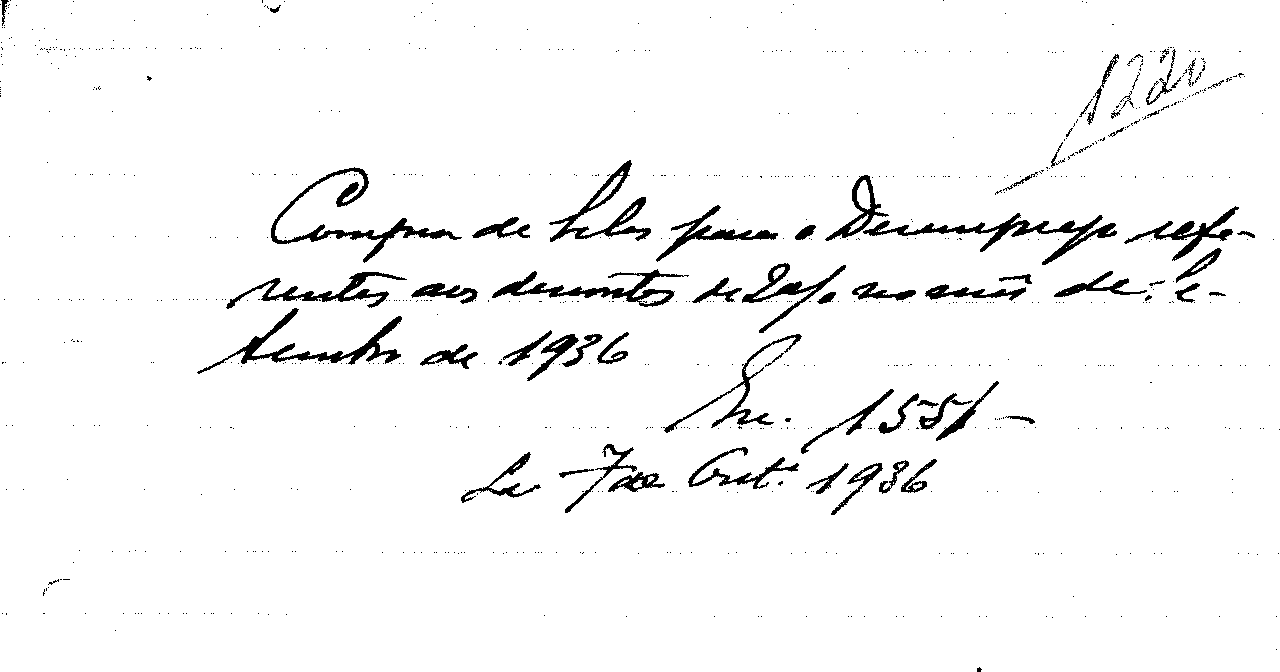 1220
Compra de Selos para o Desemprego refe-
rentes aos descontos de 2% no mês de Se-
tembro de 1936
Esc. 155$-
Lx 7 de Out. 1936